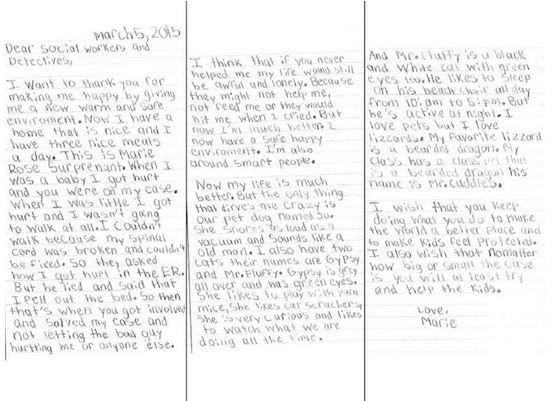 March 5, 2015
Dear Social workers and
Detectives,
I want to thank you for
making me happy by giving
me a new warm and safe
enviroment. Now I have a
home that is nice and I
have three nice meals
a day. This is Marie
Rose Surprenant. When I
was a baby I got hurt
and you were on my case.
When I was little I got
hurt and I wasn't going
to walk at all. I couldn't
walk because my spinal
cord was broken and couldn't
be fixed. So they asked
how I got hurt in the ER.
But he lied and said that
I fell out the bed. So then
that's when you got involved
and solved my case and
not letting the bad guy
hurtting me or anyone else.
I think that if you never
helped me my life would still
be awful and lonely. Because
they might not help me,
not feed me or they would
hit me when I cried. But
now I'm much better. I
now have a safe happy
enviroment. I'm also
around smart people.
Now my life is much
better. But the only thing
that drive's me crazy is
our pet dog named Jo.
She snores as loud as a
vacuum and sounds like a
old man. I also have two
cats there names are Gypsy
and Mr. Fluffy. Gypsy is grey
all over and has green eyes.
She likes to play with yarn
mice, she likes cat scratchers,
she is very curious and likes
to watch what we are
doing all the time.
And Mr. Fluffy is a black
and white cat with green
eyes too. He likes to sleep
on his beach chair all day
from 10:am to 5:pm. But
he's active at night. I
love pets but I love
lizzards. My favorite lizzard
is a bearded dragon. My
class has a class pet that
is a bearded dragon his
name is Mr. Cuddles.
I wish that you keep
doing what you do to make
the world a better place and
to make kids feel protected.
I also wish that nomatter
how big or small the case
is you will at least try
and help the kids.
Love,
Marie